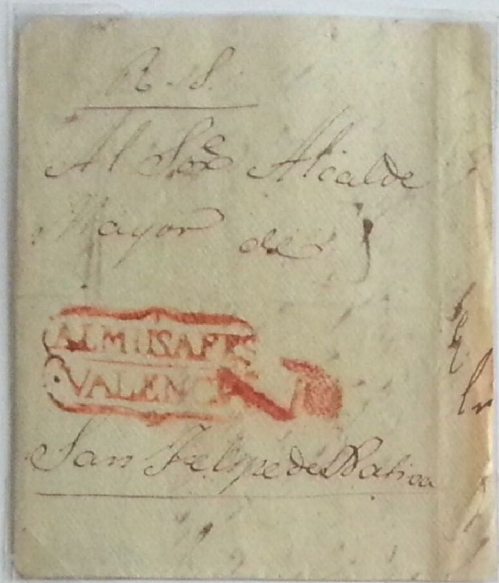 R. S.
Al Sor Alcalde
Mayor de
ALMUSAFES
VALENCIA
San Felipe de Xativa